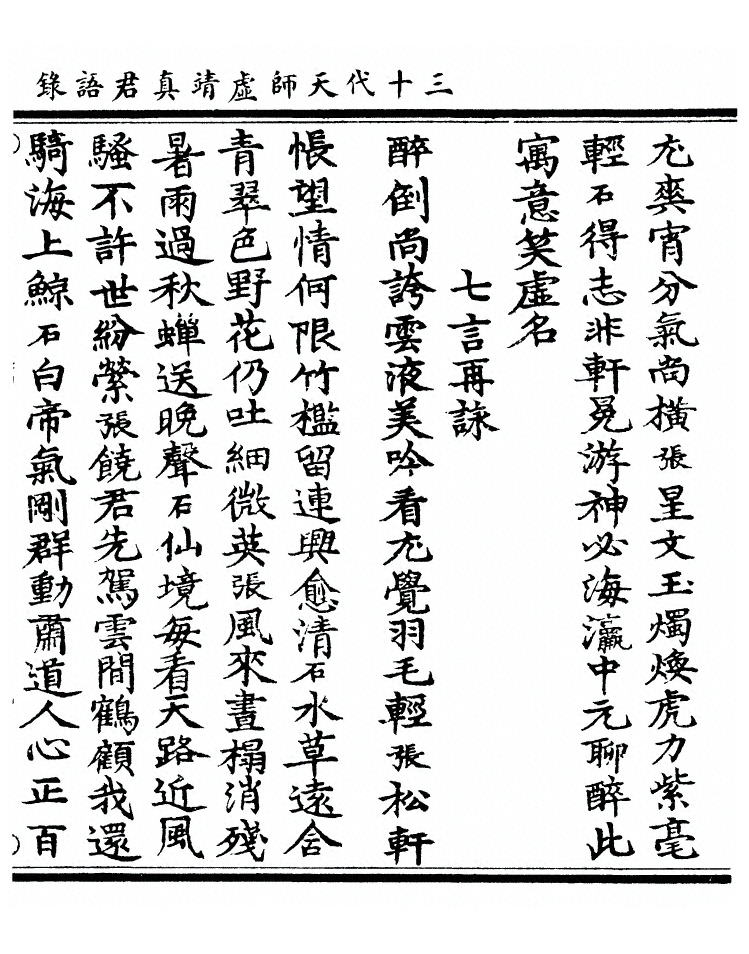 三十代天師虛靖真君語錄
尤爽宵分氣尚橫張星文玉燭煥虎力紫毫
輕石得志非軒冕游神必海瀛中元聊醉此
寓意笑虛名
七言再詠
醉倒尚誇雲液美吟看尤覺羽毛輕張松軒
悵望情何限竹檻留連興愈清石水草遠含
青翠色野花仍吐細微英張風來晝榻消殘
暑雨過秋蟬送晚聲石仙境每看天路近風
騷不許世紛縈張饒君先駕雲間鶴顧我還
騎海上鯨石白帝氣剛群動肅道人心正百